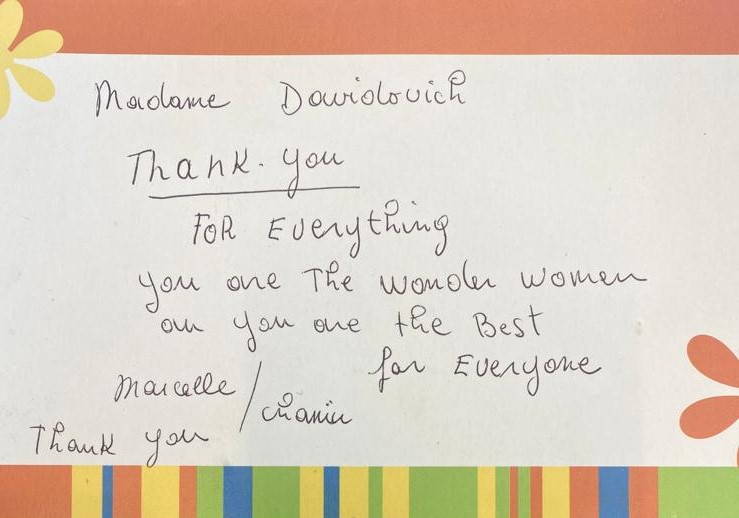 Madame Davidovich
Thank. you
FOR Everything
you are The wonder women
you are the Best
for Everyone
Marcelle /
Thank you